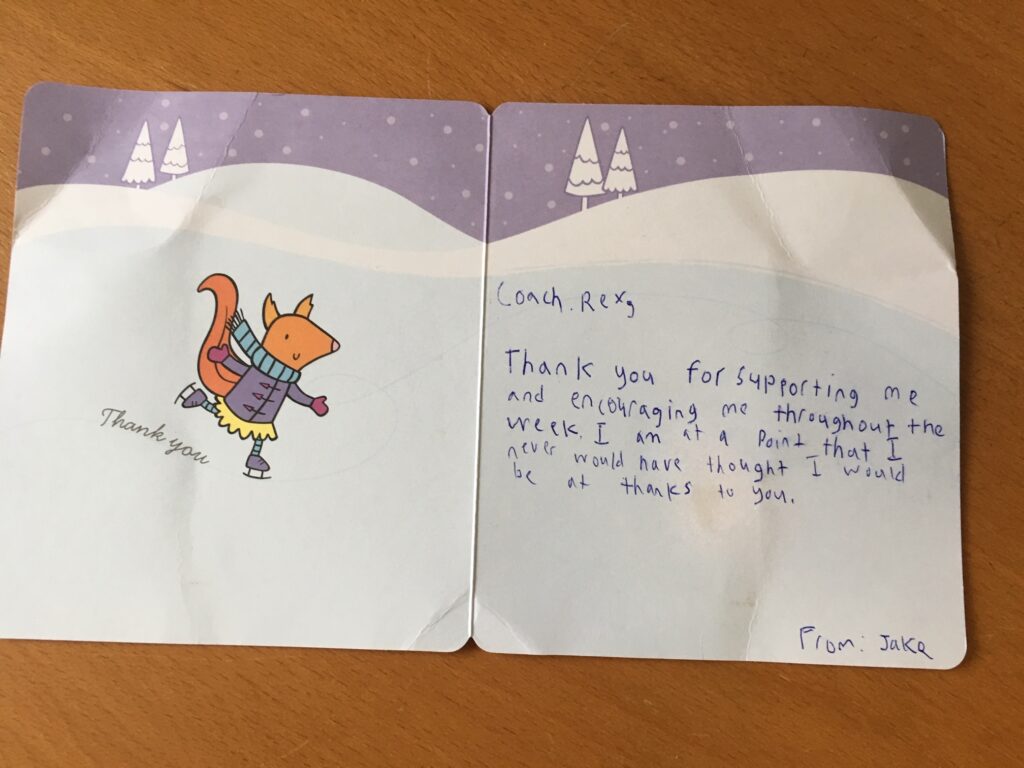 Thank you
Coach. Rex,
Thank you for supporting me
and encouraging me throughout the
week. I am at a point that I
never would have thought I would
be at thanks to you.
From: Jake